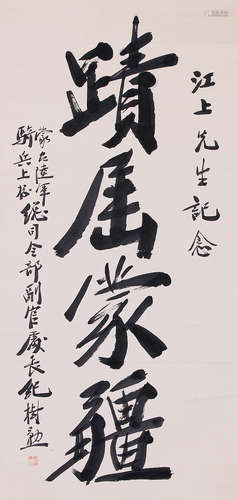 江上先生記念
蹟屆蒙疆
蒙古陸軍
騎兵上校
總司令部副官處長紀樹勳